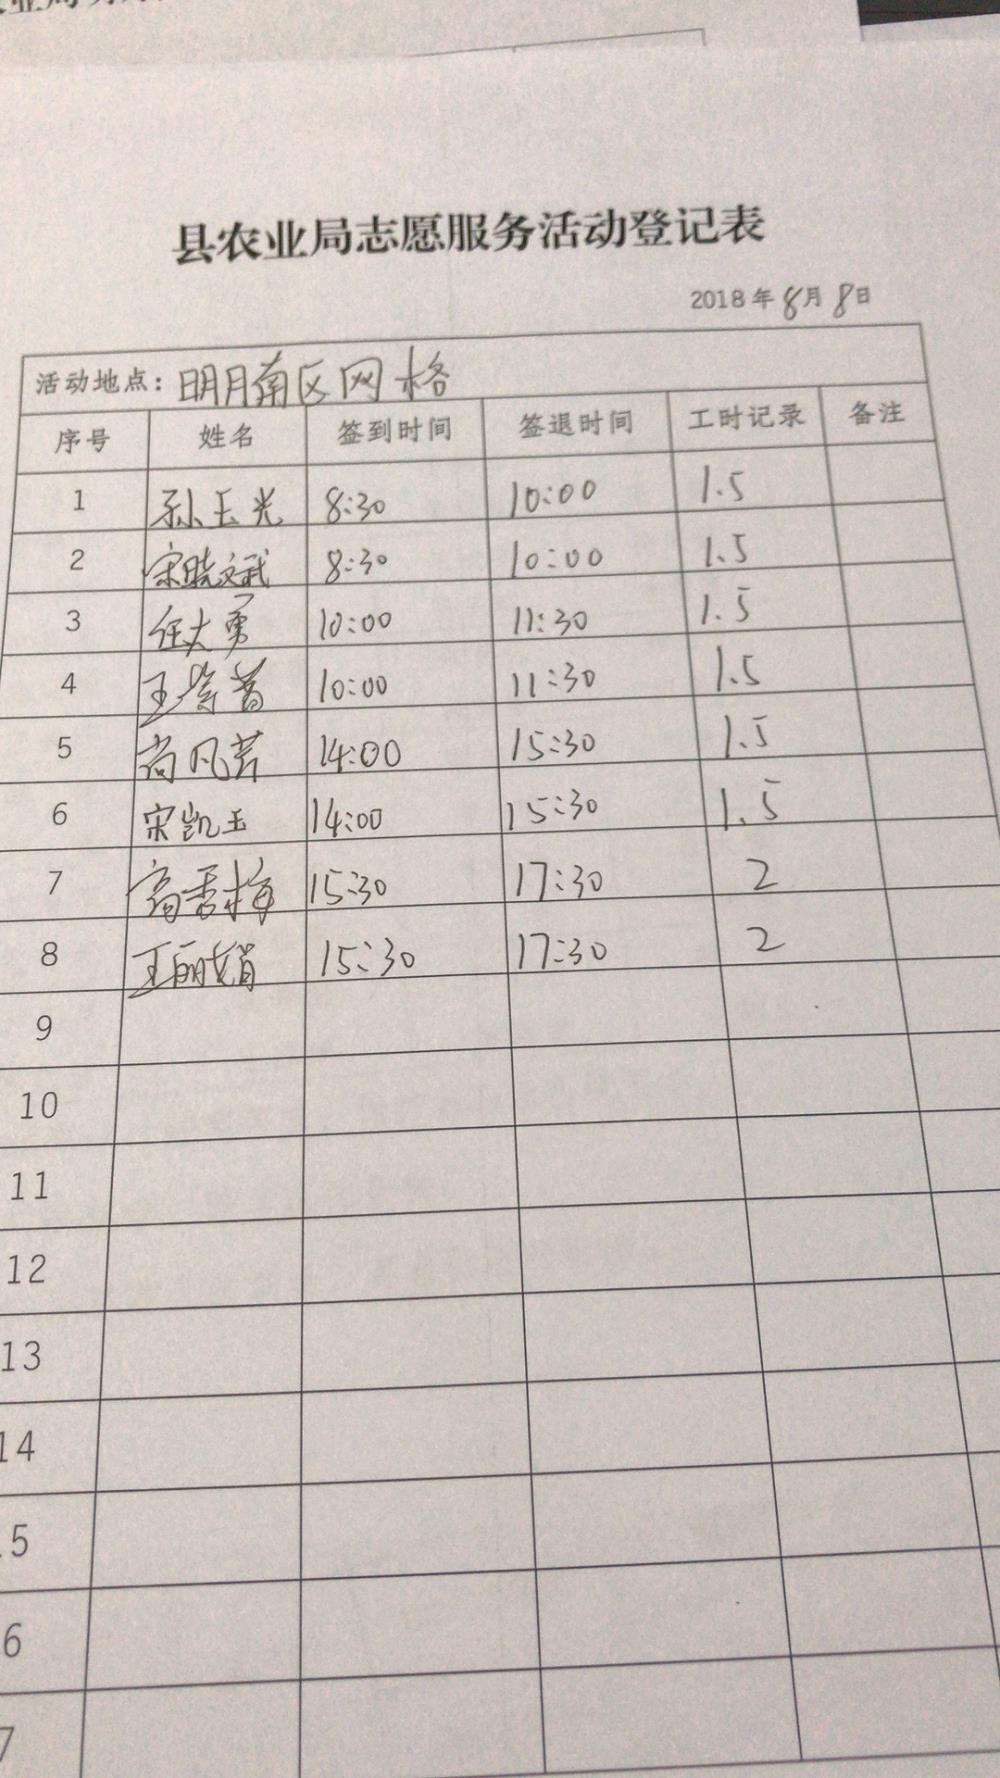 县农业局志愿服务活动登记表
2018年8月8日
活动地点：明月南区网格
序号 姓名 签到时间 签退时间 工时记录 备注
1 孙玉光 8:30 10:00 1.5
2 宋晓斌 8:30 10:00 1.5
3 任大勇 10:00 11:30 1.5
4 王 10:00 11:30 1.5
5 尚凤芹 14:00 15:30 1.5
6 宋凯玉 14:00 15:30 1.5
7 高秀梅 15:30 17:30 2
8 王丽娟 15:30 17:30 2
9
10
11
12
13
14
15
6
7